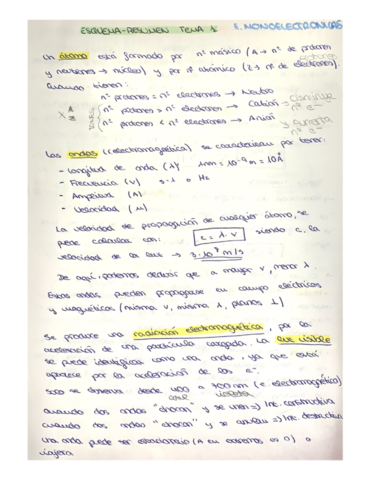 ESQUEMA-RESUMEN TEMA 1: E. MONOELECTRÓNICAS
Un átomo está formado por nº másico (A → nº de protones
y neutrones → núcleo) y por nº atómico (Z → nº de electrones).
Cuando tienen:
nº protones = nº electrones → Neutro
nº protones > nº electrones → Catión → disminuye nº e-
nº protones < nº electrones → Anión → Aumenta nº e-
X A Z
Las ondas (electromagnética) se caracterizan por tener:
- Longitud de onda (λ) 1nm = 10⁻⁹ m = 10 Å
- Frecuencia (ν) s-1 o Hz
- Amplitud (A)
- Velocidad (μ)
La velocidad de propagación de cualquier átomo, se
puede calcular con: c = λ · ν siendo c, la
velocidad de la luz → 3·10⁸ m/s
De aquí, podemos deducir que a mayor ν, menor λ.
Estas ondas pueden propagarse en campo eléctricos
y magnéticos (misma ν, misma λ, planos ⊥)
Se produce una radiación electromagnética, por la
aceleración de una partícula cargada. La luz visible
se puede identificar como una onda, ya que
aparece por la aceleración de los e-.
Solo se observa desde 400 a 700nm (e. electromagnético)
violeta
Cuando dos ondas "chocan" y se unen => Int. constructiva
Cuando dos ondas "chocan" y se anulan => Int. destructiva
Una onda puede ser estacionaria (A en extremos es 0) o
viajera